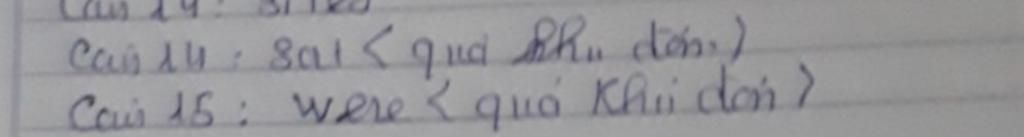 Câu 14 : sat < quá khứ đơn. >
Câu 15 : were < quá khứ đơn >